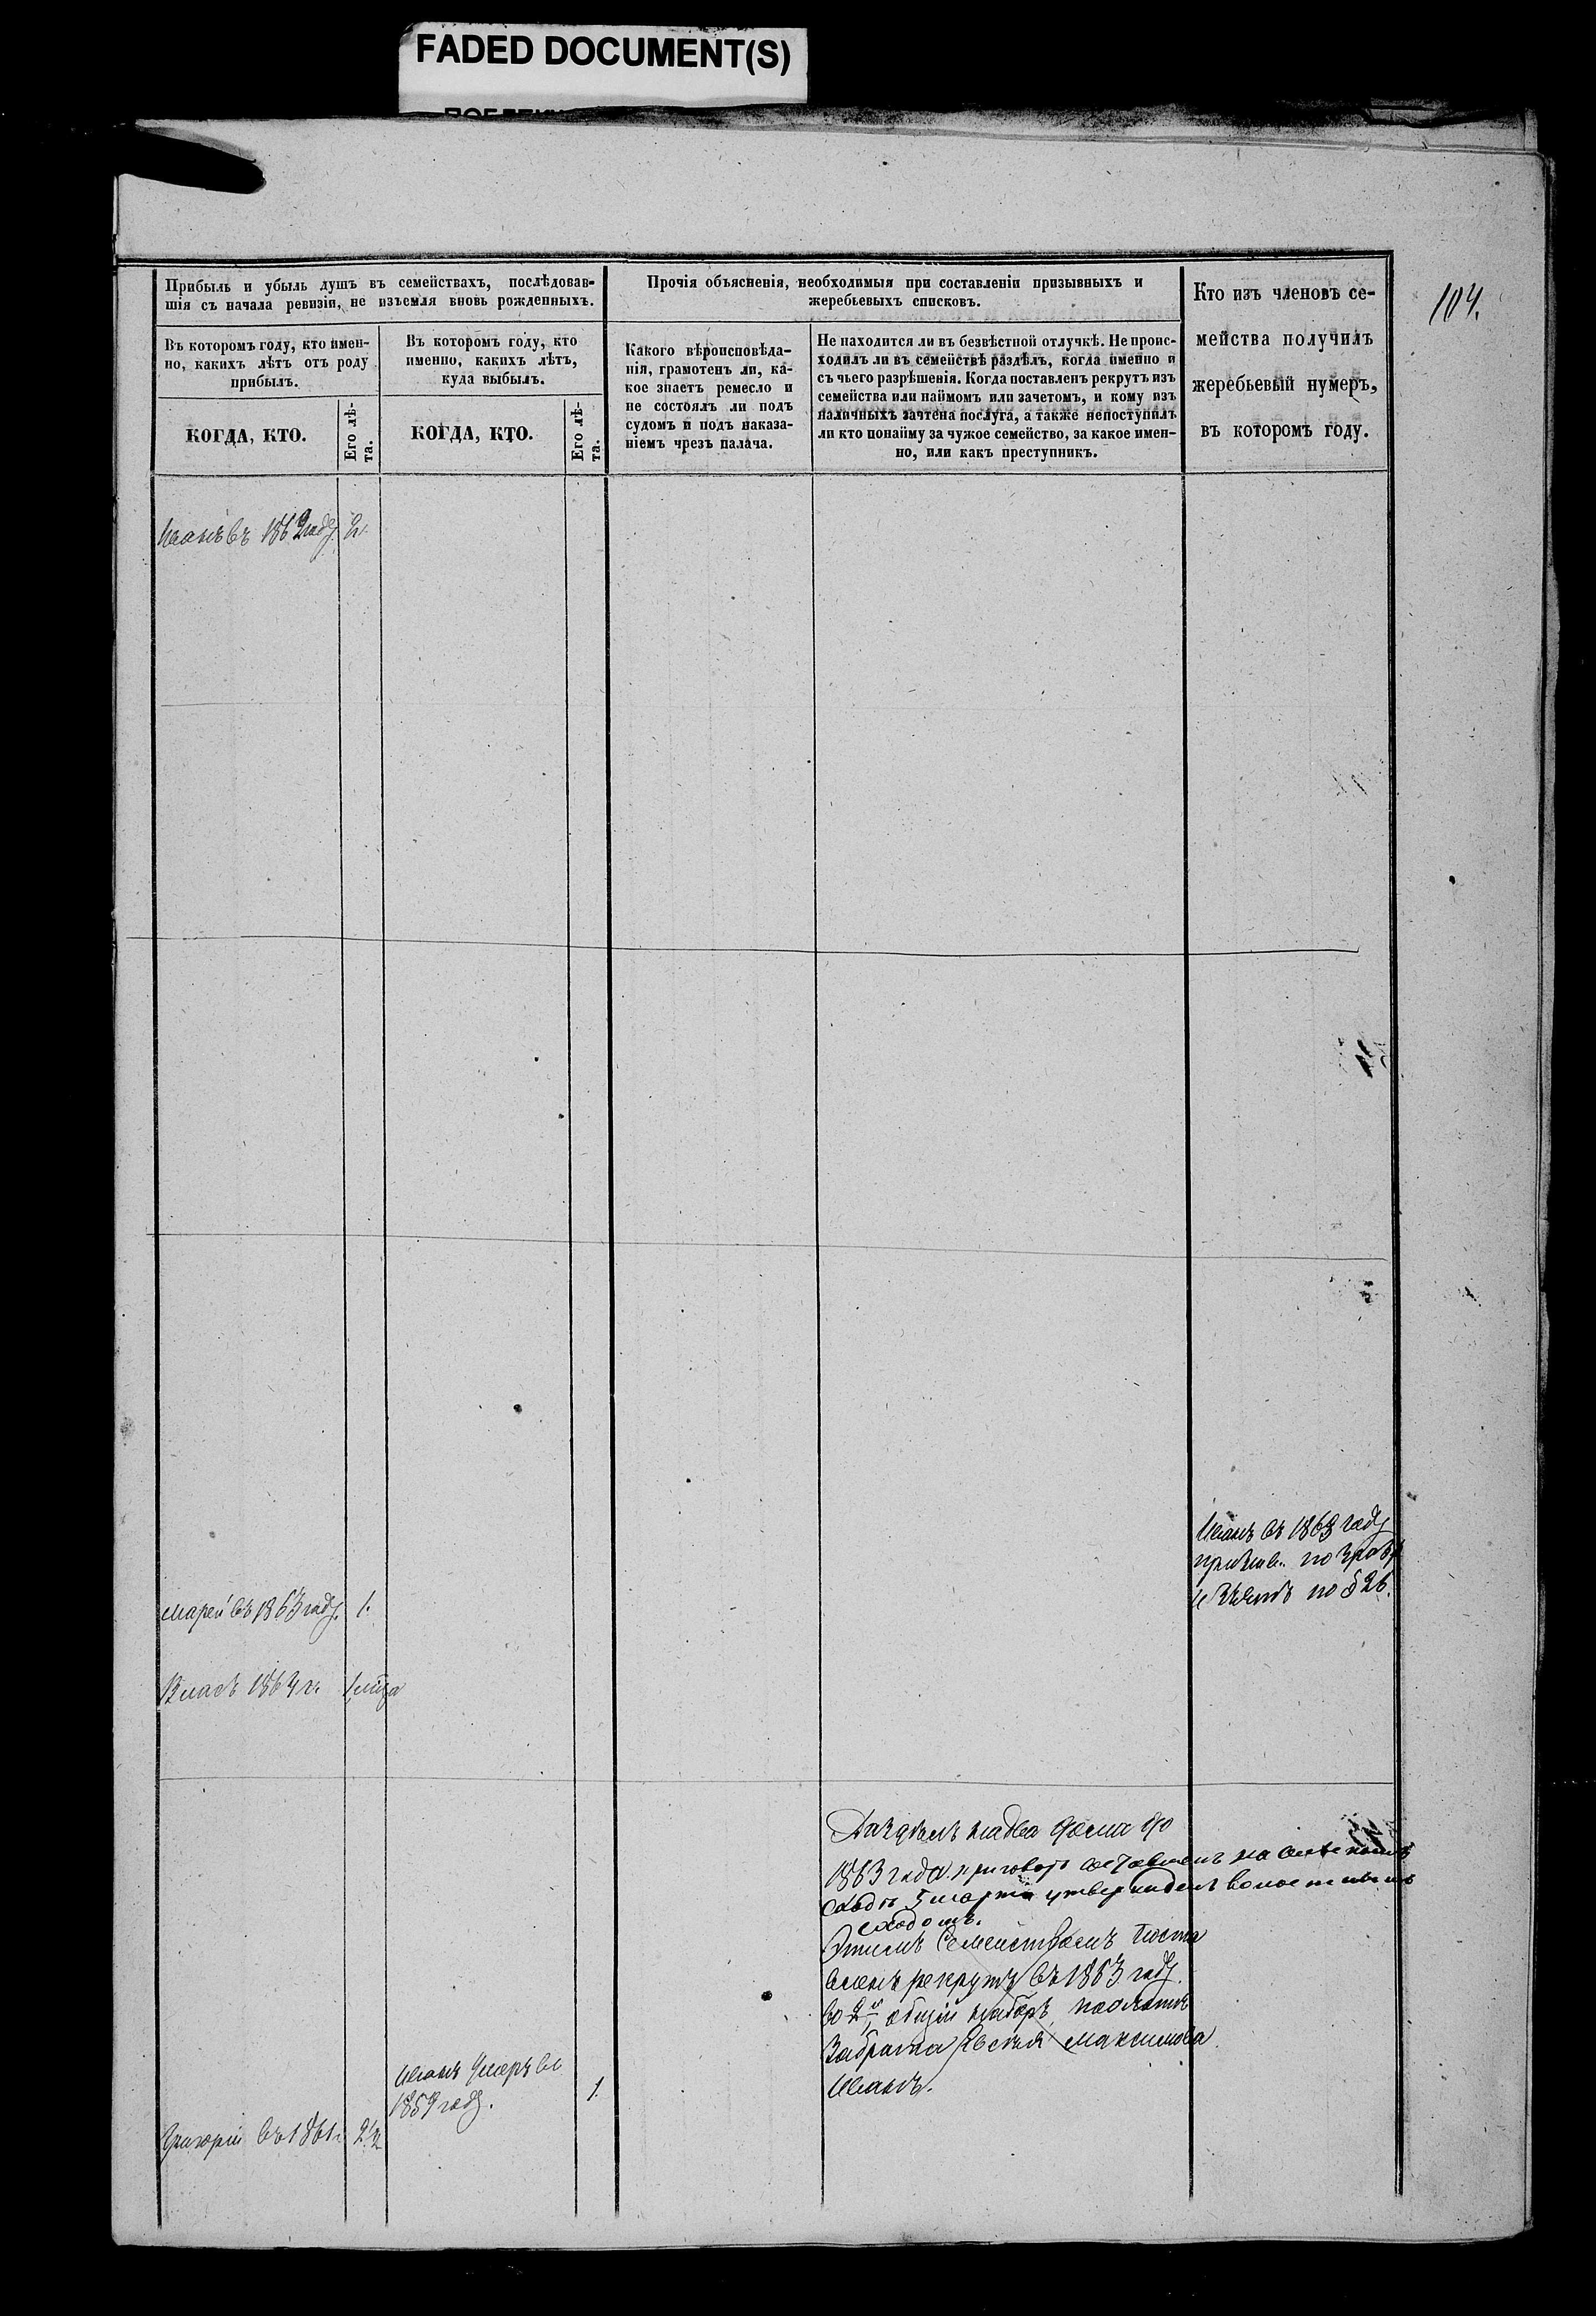 FADED DOCUMENT(S)
104.
Прибыль и убыль душъ въ семействахъ, послѣдовав-
шія съ начала ревизіи, не изъемля вновь рожденныхъ.
Прочія объясненія, необходимыя при составленіи призывныхъ и
жеребьевыхъ списковъ.
Кто изъ членовъ се-
мейства получилъ
жеребьевый нумеръ,
въ которомъ году.
Въ которомъ году, кто имен-
но, какихъ лѣтъ отъ роду
прибылъ.
Въ которомъ году, кто
именно, какихъ лѣтъ,
куда выбылъ.
Какого вѣроисповѣда-
нія, грамотенъ ли, ка-
кое знаетъ ремесло и
не состоялъ ли подъ
судомъ и подъ наказа-
ніемъ чрезъ палача.
Не находится ли въ безвѣстной отлучкѣ. Не проис-
ходилъ ли въ семействѣ раздѣлъ, когда именно и
съ чьего разрѣшенія. Когда поставленъ рекрутъ изъ
семейства или наймомъ или зачетомъ, и кому изъ
наличныхъ зачтена послуга, а также непоступилъ
ли кто понайму за чужое семейство, за какое имен-
но, или какъ преступникъ.
КОГДА, КТО.
Его лѣ-
та.
КОГДА, КТО.
Его лѣ-
та.
Иванъ въ 1862 году 2.
Иванъ въ 1863 году
по
по § 26.
въ 1863 году. 1.
Власъ 1864 г.
Раздѣлъ на два дома
1863 года приговоръ составленъ на сельскомъ
сходѣ 5 марта утвержденъ волостнымъ
сходомъ.
Этимъ Семействомъ Поста
вленъ рекрутъ въ 1863 году.
во 2й общій наборъ
За брата Максимова
Иванъ.
Иванъ умеръ въ
1859 году. 1
Григорій въ 1861 г. 2½